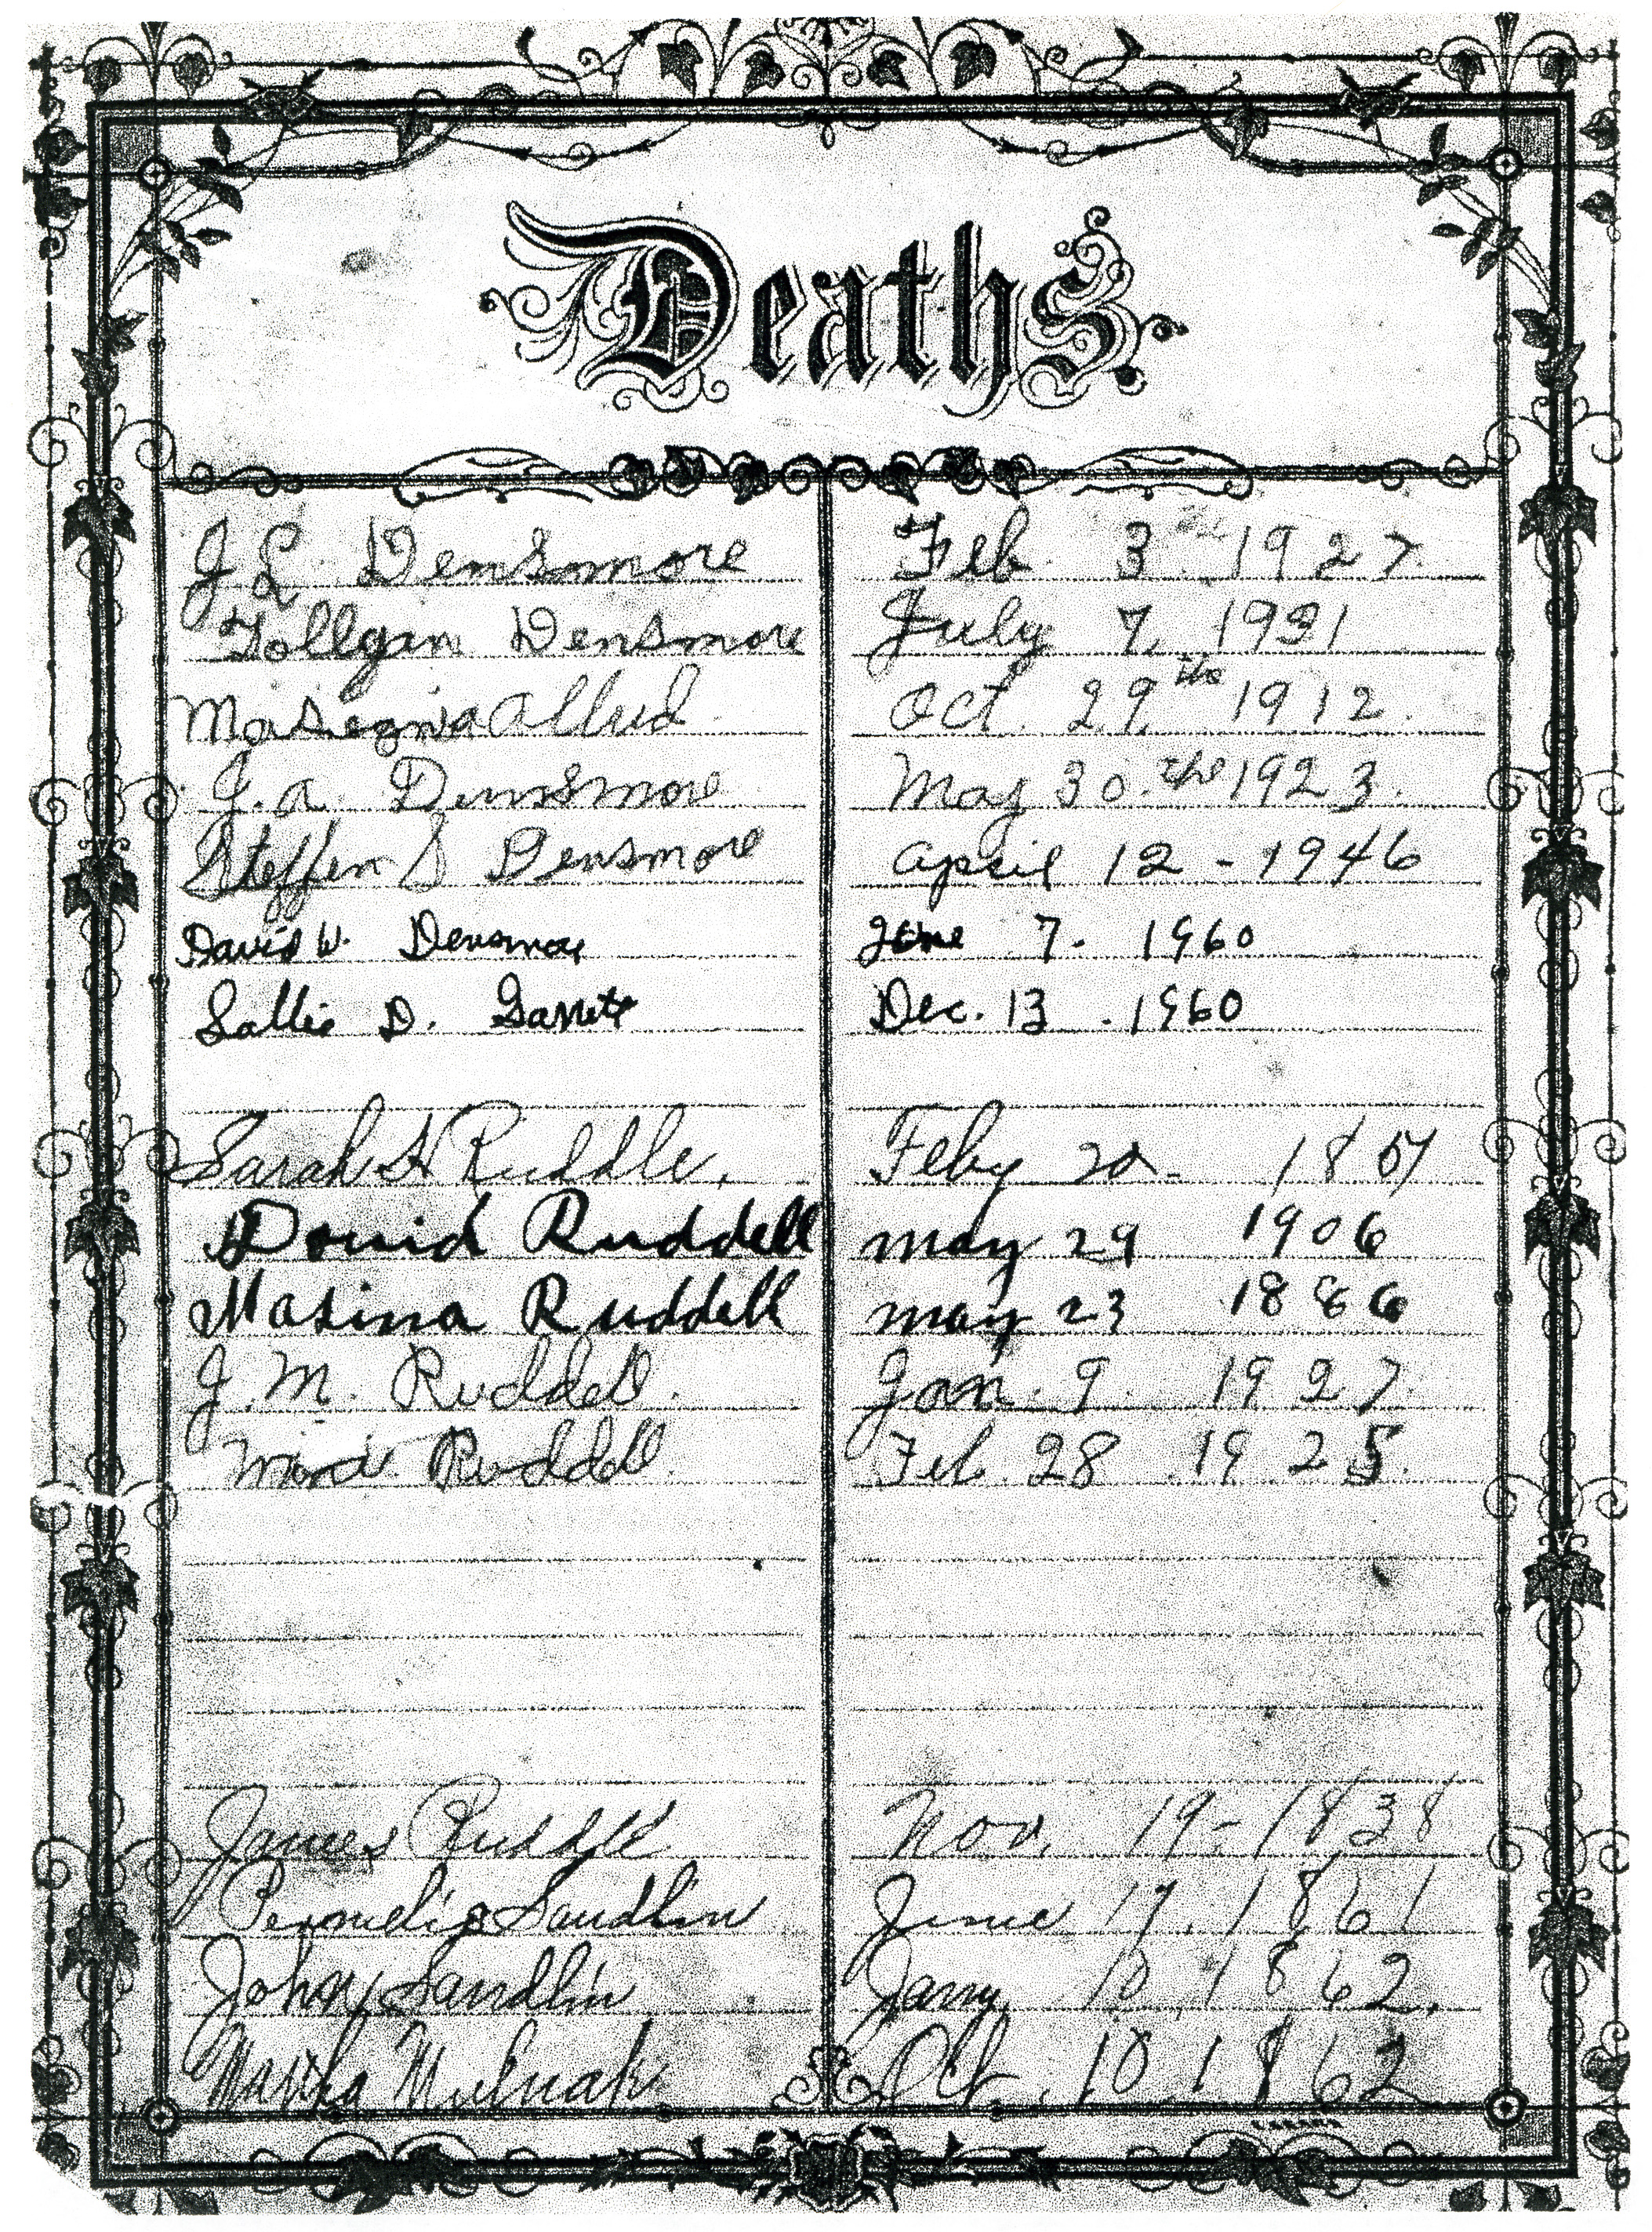 Deaths
J L Densmore Feb. 3 1927
Tollgan Densmore July 7, 1931
Allred Oct. 29th 1912.
J. A. Densmore May 30.the 1923.
Steffen S Densmore April 12 - 1946
David W. Densmore June 7. 1960
Sallie D. Garrett Dec. 13. 1960
Sarah A Ruddle, Feby 20 - 18
David Ruddell may 29 1906
Masina Ruddell may 23 1886
J. M. Ruddell. Jan. 9. 1927.
Ruddell. Feb. 28 1925.
James Ruddle Nov. 19 - 1838
Permelia Sandlin June 17. 1861
John Sandlin Jany 10 1862.
Martha Oct. 10 1862